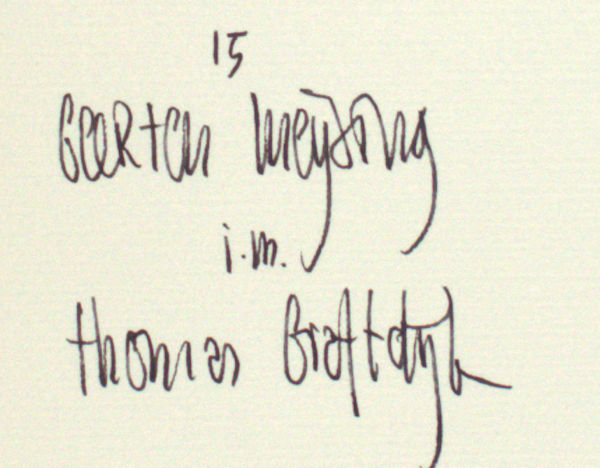 15
Geerten Meijsing
i.m.
Thomas Graftdijk